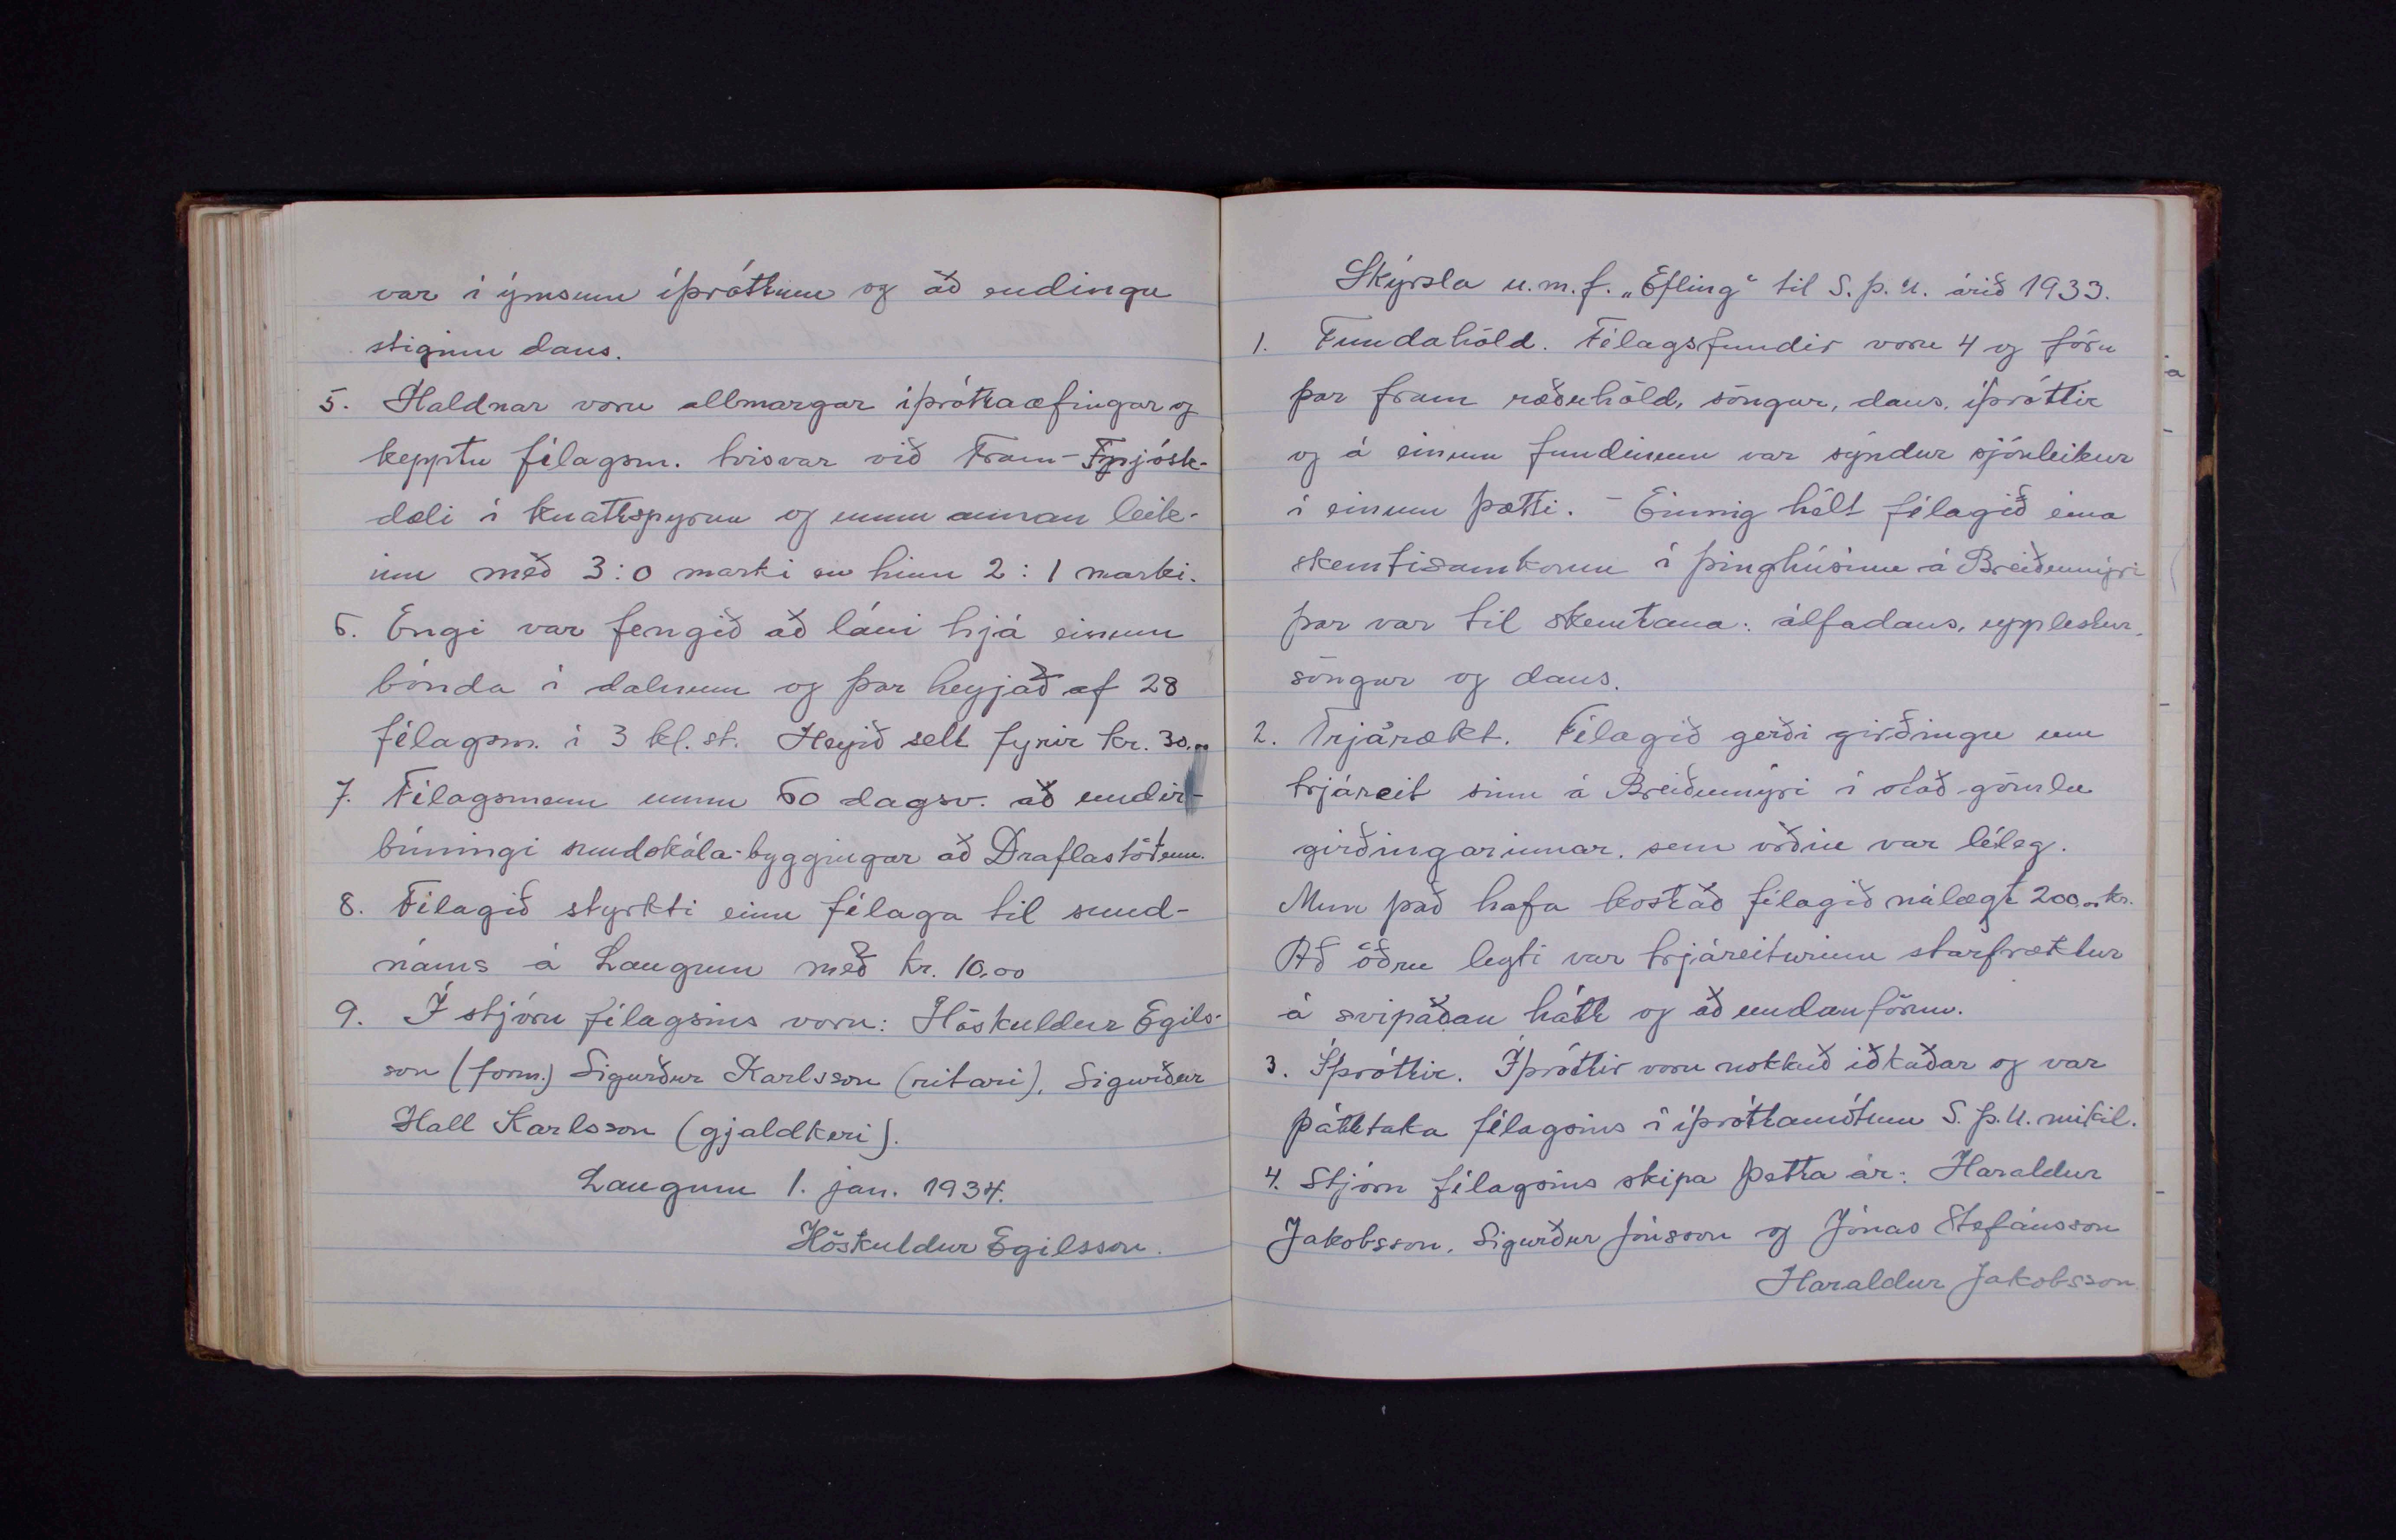 var í ýmsum íþróttum og að endingu
stiginn dans.
5. Haldnar voru allmargar íþróttaæfingar og
kepptu félagsm. tvisvar við Fram-Fnjósk-
dæli í knattspyrnu og unnu annan leik-
inn með 3:0 marki en hinn 2:1 marki.
6. Engi var fengið að láni hjá einum
bónda í dalnum og þar heyjað af 28
félagsm. í 3 kl.st. Heyið selt fyrir kr. 30.00
7. Félagsmenn unnu 60 dagsv. að undir-
búningi sundskála-byggingar að Draflastöðum.
8. Félagið styrkti einn félaga til sund-
náms á Laugum með kr. 10.00
9. Í stjórn félagsins voru: Höskuldur Egils-
son (form.) Sigurður Karlsson (ritari), Sigurður
Hall Karlsson (gjaldkeri).
Laugum 1. jan. 1934.
Höskuldur Egilsson.
Skýrsla u.m.f. „Efling“ til S.Þ.U. árið 1933.
1. Fundahöld. Félagsfundir voru 4 og fóru
þar fram ræðuhöld, söngur, dans, íþróttir
og á einum fundinum var sýndur sjónleikur
í einum þætti. - Einnig hélt félagið eina
skemtisamkomu í þinghúsinu á Breiðumýri
þar var til skemtana: álfadans, upplestur,
söngur og dans.
2. Trjárækt. Félagið gerði girðingu um
trjáreit sinn á Breiðumýri í stað gömlu
girðingarinnar, sem orðin var léleg.
Mun það hafa kostað félagið nálægt 200.00 kr.
Að öðru leyti var trjáreiturinn starfræktur
á svipaðan hátt og að undanförnu.
3. Íþróttir. Íþróttir voru nokkuð iðkaðar og var
þátttaka félagsins í íþróttamótum S.Þ.U. mikil.
4. Stjórn félagsins skipa þetta ár: Haraldur
Jakobsson, Sigurður Jónsson og Jónas Stefánsson
Haraldur Jakobsson